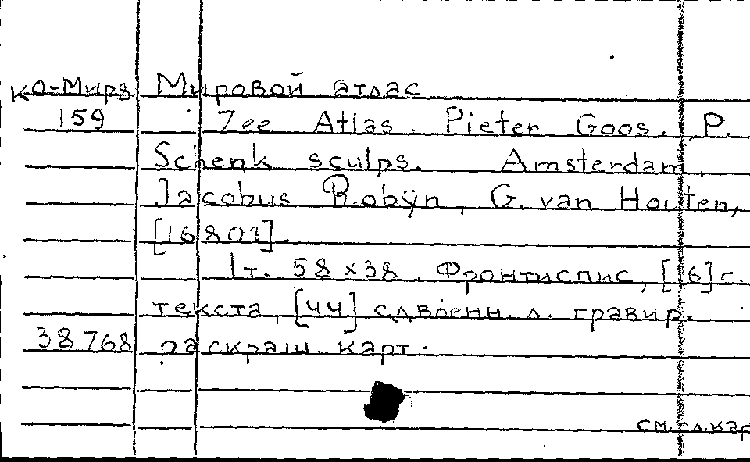 КО-Мирз Мировой атлас
159 Zee Atlas. Pieter Goos. P.
Schenk sculps. Amsterdam,
Jacobus Robÿn, G. van Houten,
[1680?].
1 т. 58 x 38. Фронтиспис, [16] с.
текста, [44] сдвоенн. л. гравир.
38768 раскраш. карт.
см. гл. кар